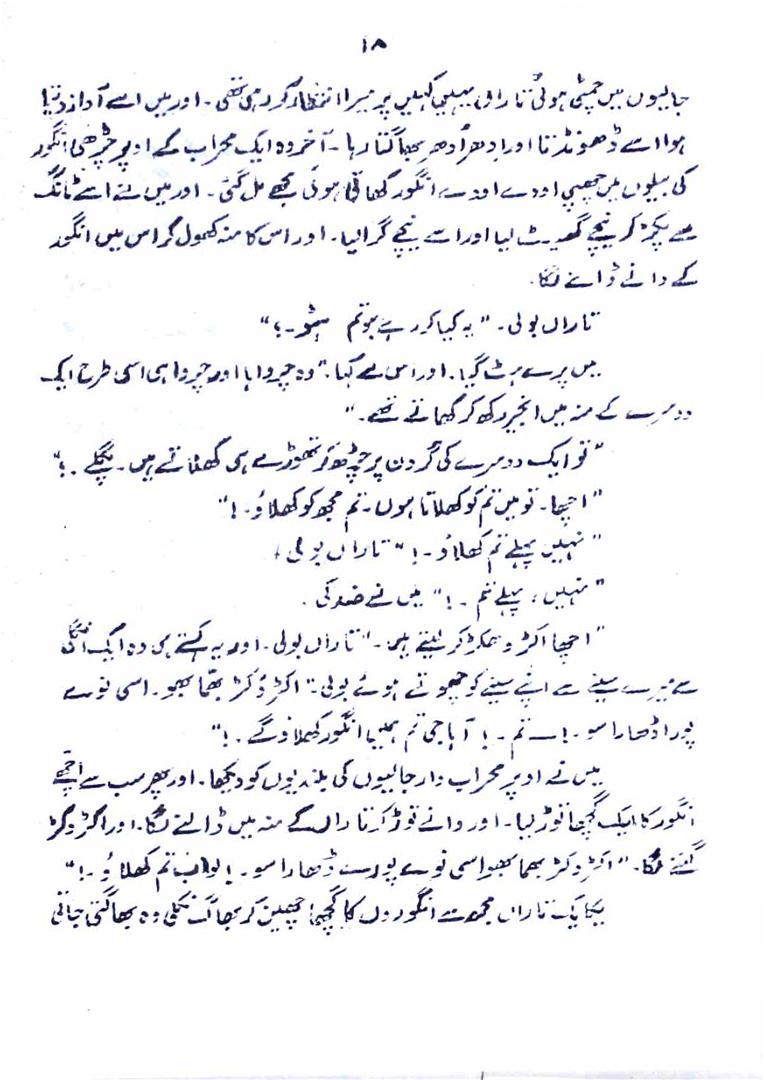 ۱۸
جالیوں میں چمٹی ہوئی تاراں یہیں کہیں پر میرا انتظار کر رہی تھی۔ اور میں اسے آواز دیتا
ہوا اسے ڈھونڈتا اور ادھر اُدھر بھاگتا رہا۔ آخر وہ ایک محراب کے اوپر چڑھی انگور
کی بیلوں میں چھپی اودے اودے انگور کھاتی ہوئی مجھے مل گئی۔ اور میں نے اسے ٹانگ
سے پکڑ کر نیچے گھسیٹ لیا اور اسے نیچے گرا لیا۔ اور اس کا منہ کھول کر اس میں انگور
کے دانے ڈالنے لگا۔
تاراں بولی۔ "یہ کیا کر رہے ہو تم ہٹو۔؟"
میں پرے ہٹ گیا۔ اور اس سے کہا۔ "وہ چرواہا اور چرواہی اسی طرح ایک
دوسرے کے منہ میں انجیر رکھ کر کھاتے تھے۔"
"تو ایک دوسرے کی گردن پر چڑھ کر تھوڑے ہی کھلاتے ہیں۔ پگلے۔!"
"اچھا۔ تو میں تم کو کھلاتا ہوں۔ تم مجھ کو کھلاؤ۔!"
"نہیں پہلے تم کھلاؤ۔!" تاراں بولی۔
"نہیں، پہلے تم۔!" میں نے ضد کی۔
"اچھا اکڑ دکڑ کر لیتے ہیں۔" تاراں بولی۔ اور یہ کہتے ہی وہ ایک انگلی
سے میرے سینے سے اپنے سینے کو چھوتے ہوئے بولی "اکڑ دُکڑ بھمبا بھو۔ اسی نوے
پورا ڈھارا سو۔! — تم۔! آہا جی تم ہمیں انگور کھلاؤ گے۔!"
میں نے اوپر محراب دار جالیوں کی بلندیوں کو دیکھا۔ اور پھر سب سے اچھے
انگور کا ایک گچھا توڑ لیا۔ اور دانے توڑ کر تاراں کے منہ میں ڈالنے لگا۔ اور اکڑ دکڑ
گننے لگا۔ "اکڑ دکڑ بھمبا بھو اسی نوے پورے ڈھارا سو۔! لو اب تم کھلاؤ۔!"
یکایک تاراں مجھ سے انگوروں کا گچھا چھین کر بھاگ نکلی وہ بھاگتی جاتی